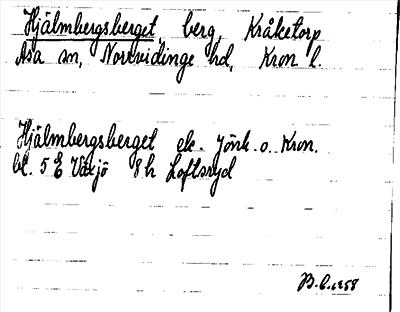 Hjälmbergsberget, berg, Kråketorp
Asa sn, Norrvidinge hd, Kron l.
Hjälmbergsberget ek. Jönk. o. Kron.
bl. 5 E Växjö 8 h Loftsryd
B.L. 1958